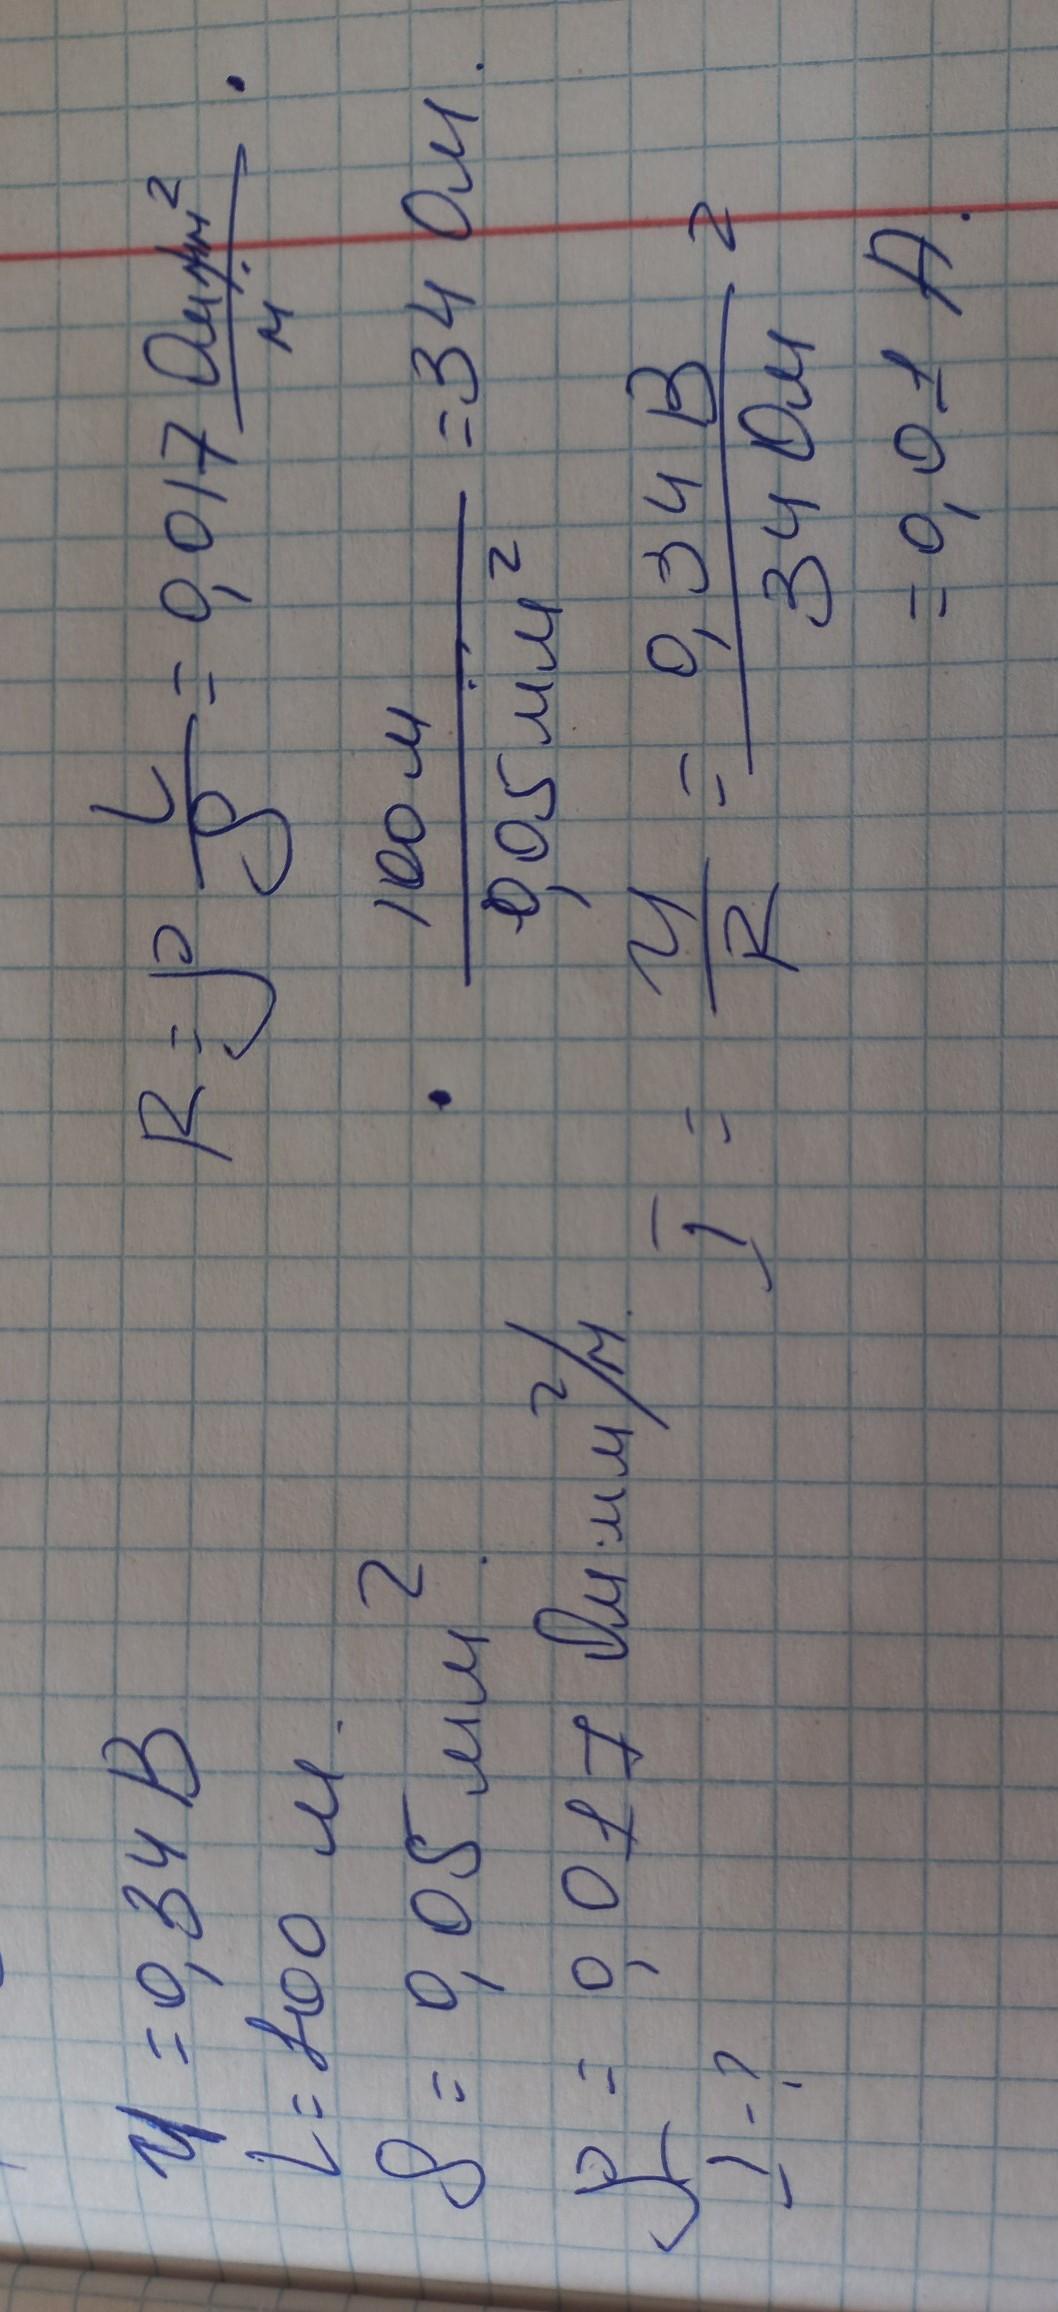 U = 0,34 В
L = 100 м.
S = 0,05 мм².
ρ = 0,017 Ом·мм²/м.
I - ?
R = ρ L/S = 0,017 Ом·мм²/м ·
· 100 м / 0,05 мм² = 34 Ом.
I = U/R = 0,34 В / 34 Ом =
= 0,01 А.